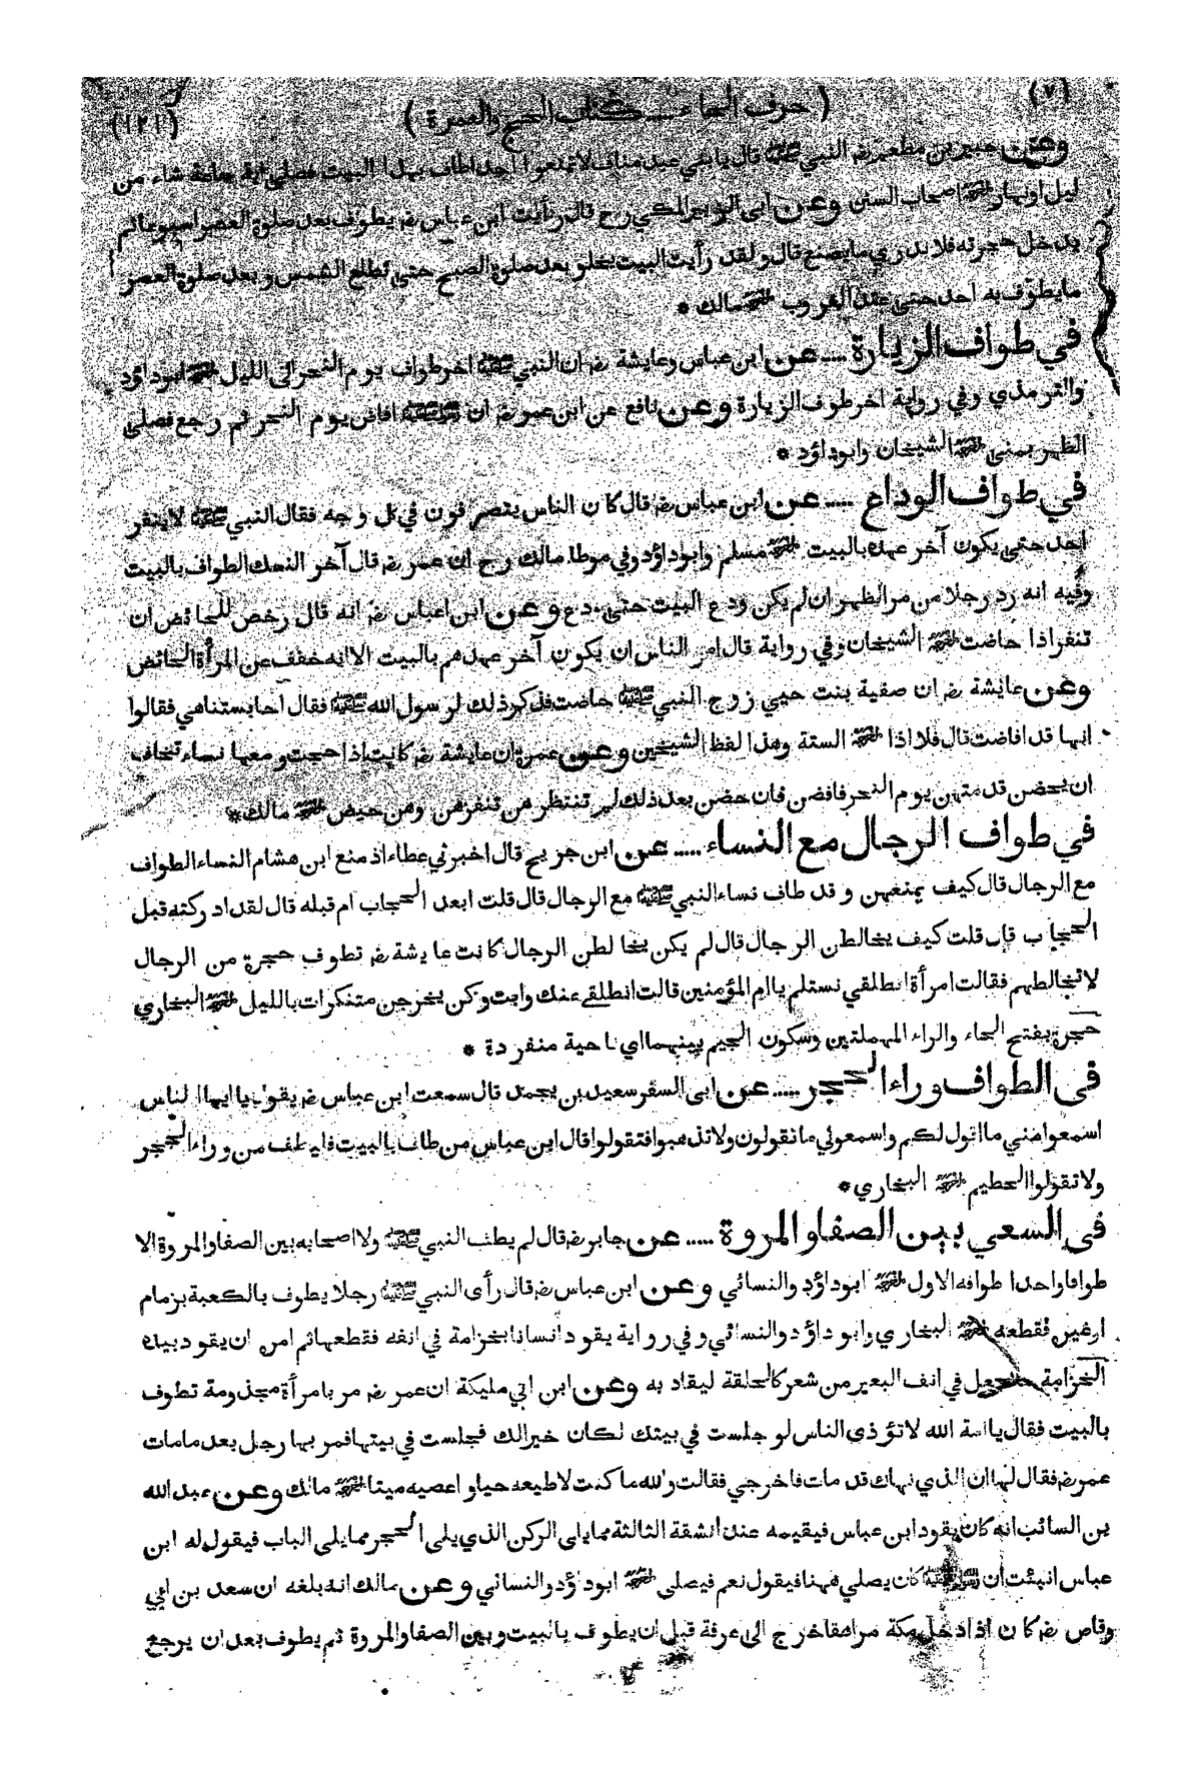 (٧)
( حرف الحاء — كتاب الحج والعمرة )
(١٢١)
وعن جبير بن مطعم رض النبي ﷺ قال يا بني عبد مناف لا تمنعوا احد اطاف بهذا البيت فصلى اية ساعة شاء من
ليل او نهار اصحاب السنن وعن ابى الزبير المكي رح قال رأيت ابن عباس رض يطوف بعد صلوة العصر اسبوعا ثم
يدخل حجرته فلا ندري ما يصنع قال ولقد رأيت البيت يخلو بعد صلوة الصبح حتى تطلع الشمس وبعد صلوة العصر
ما يطوف به احد حتى عند الغروب مالك *
في طواف الزيارة ... عن ابن عباس وعايشة رض ان النبي ﷺ اخر طواف يوم النحر الى الليل ابوداؤد
والترمذي وفي رواية اخر طوف الزيارة وعن نافع عن ابن عمر رض ان ﷺ افاض يوم النحر ثم رجع فصلى
الظهر بمنى الشيخان وابوداؤد *
في طواف الوداع .... عن ابن عباس رض قال كان الناس ينصرفون في كل وجه فقال النبي ﷺ لا ينفر
احد حتى يكون آخر عهده بالبيت مسلم وابوداؤد وفي موطا مالك رح ان عمر رض قال آخر النسك الطواف بالبيت
وفيه انه رد رجلا من مر الظهران لم يكن ودع البيت حتى ودع وعن ابن عباس رض انه قال رخص للحائض ان
تنفر اذا حاضت الشيخان وفي رواية قال امر الناس ان يكون آخر عهدهم بالبيت الا انه خفف عن المرأة الحائض
وعن عايشة رض ان صفية بنت حيي زوج النبي ﷺ حاضت فذكر ذلك لرسول الله ﷺ فقال أحابستنا هي فقالوا
انها قد افاضت قال فلا اذا الستة وهذا لفظ الشيخين وعن عمرة ان عايشة رض كانت اذا حجت ومعها نساء تخاف
ان يحضن قدمتهن يوم النحر فافضن فان حضن بعد ذلك لم تنتظرهن تنفرهن وهن حيض مالك *
في طواف الرجال مع النساء .... عن ابن جريج قال اخبرني عطاء اذ منع ابن هشام النساء الطواف
مع الرجال قال كيف يمنعهن وقد طاف نساء النبي ﷺ مع الرجال قال قلت ابعد الحجاب ام قبله قال لقد ادركته قبل
الحجاب قال قلت كيف يخالطن الرجال قال لم يكن يخالطن الرجال كانت عايشة رض تطوف حجرة من الرجال
لا تخالطهم فقالت امرأة انطلقي نستلم يا ام المؤمنين قالت انطلقي عنك وابت وكن يخرجن متنكرات بالليل البخاري
حجرة بفتح الحاء والراء المهملتين وسكون الجيم بينهما اى ناحية منفردة *
فى الطواف وراء الحجر .... عن ابى السفر سعيد بن يحمد قال سمعت ابن عباس رض يقول يا ايها الناس
اسمعوا مني ما اقول لكم واسمعوني ما تقولون ولا تذهبوا فتقولوا قال ابن عباس من طاف بالبيت فليطف من وراء الحجر
ولا تقولوا الحطيم البخاري *
فى السعي بين الصفا والمروة .... عن جابر رض قال لم يطف النبي ﷺ ولا اصحابه بين الصفا والمروة الا
طوافا واحدا طوافه الاول ابوداؤد والنسائي وعن ابن عباس رض قال رأى النبي ﷺ رجلا يطوف بالكعبة بزمام
او غيره فقطعه البخاري وابوداؤد والنسائي وفي رواية يقود انسانا بخزامة في انفه فقطعها ثم امره ان يقود بيده
الخزامة تجعل في انف البعير من شعر كالحلقة ليقاد به وعن ابن ابي مليكة ان عمر رض مر بامرأة مجذومة تطوف
بالبيت فقال يا امة الله لا تؤذى الناس لو جلست في بيتك لكان خيرالك فجلست في بيتها فمر بها رجل بعد ما مات
عمر رض فقال لها ان الذي نهاك قد مات فاخرجي فقالت والله ما كنت لاطيعه حيا واعصيه ميتا مالك وعن عبد الله
بن السائب انه كان يقود ابن عباس فيقيمه عند الشقة الثالثة مما يلى الركن الذي يلى الحجر مما يلى الباب فيقول له ابن
عباس انبئت ان ﷺ كان يصلي ههنا فيقول نعم فيصلى ابوداؤد والنسائي وعن مالك انه بلغه ان سعد بن ابي
وقاص رض كان اذا دخل مكة مراهقا خرج الى عرفة قبل ان يطوف بالبيت وبين الصفا والمروة ثم يطوف بعد ان يرجع